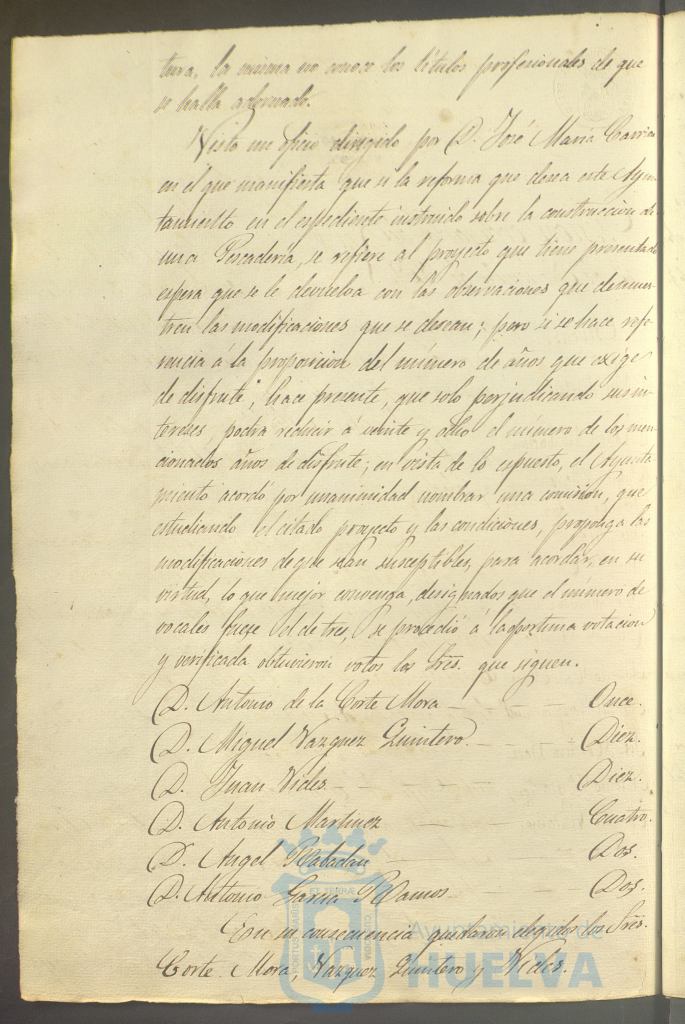 tura, la misma no conoce los títulos profesionales de que
se halla adornado.
Visto un oficio dirigido por D. José María Carri
en el que manifiesta que si la reforma que desea este Ayun-
tamiento en el espediente instruido sobre la construccion de
una Pescadería, se refiere al proyecto que tiene presentado
espera que se le devuelva con las observaciones que demues-
tren las modificaciones que se desean; pero si se hace refe-
rencia á la proposicion del número de años que exige
de disfrute, hace presente, que solo perjudicando sus in-
tereses podrá reducir á veinte y ocho el número de los men-
cionados años de disfrute; en vista de lo espuesto, el Ayunta
miento acordó por unanimidad nombrar una comision, que
estudiando el citado proyecto y las condiciones, proponga las
modificaciones de que sean susceptibles, para acordar, en su
virtud, lo que mejor convenga, designados que el número de
vocales fuese el de tres, se procedió á la oportuna votacion
y verificada obtuvieron votos los Sres. que siguen.
D. Antonio de la Corte Mora - - - Once.
D. Miguel Vazquez Quintero. - - - Diez.
D. Juan Vides - - - Diez.
D. Antonio Martinez - - - Cuatro.
D. Angel Rabadan - - - Dos.
D. Antonio Garcia Ramos - - - Dos.
En su consecuencia quedaron elegidos los Sres.
Corte Mora, Vazquez Quintero y Vides.
Ayuntamiento de
HUELVA